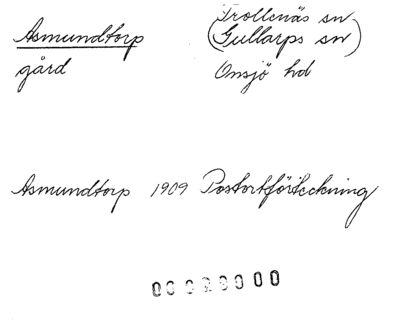 Asmundtorp
gård
Trollenäs sn
(Gullarps sn)
Onsjö hd
Asmundtorp 1909 Postortförteckning